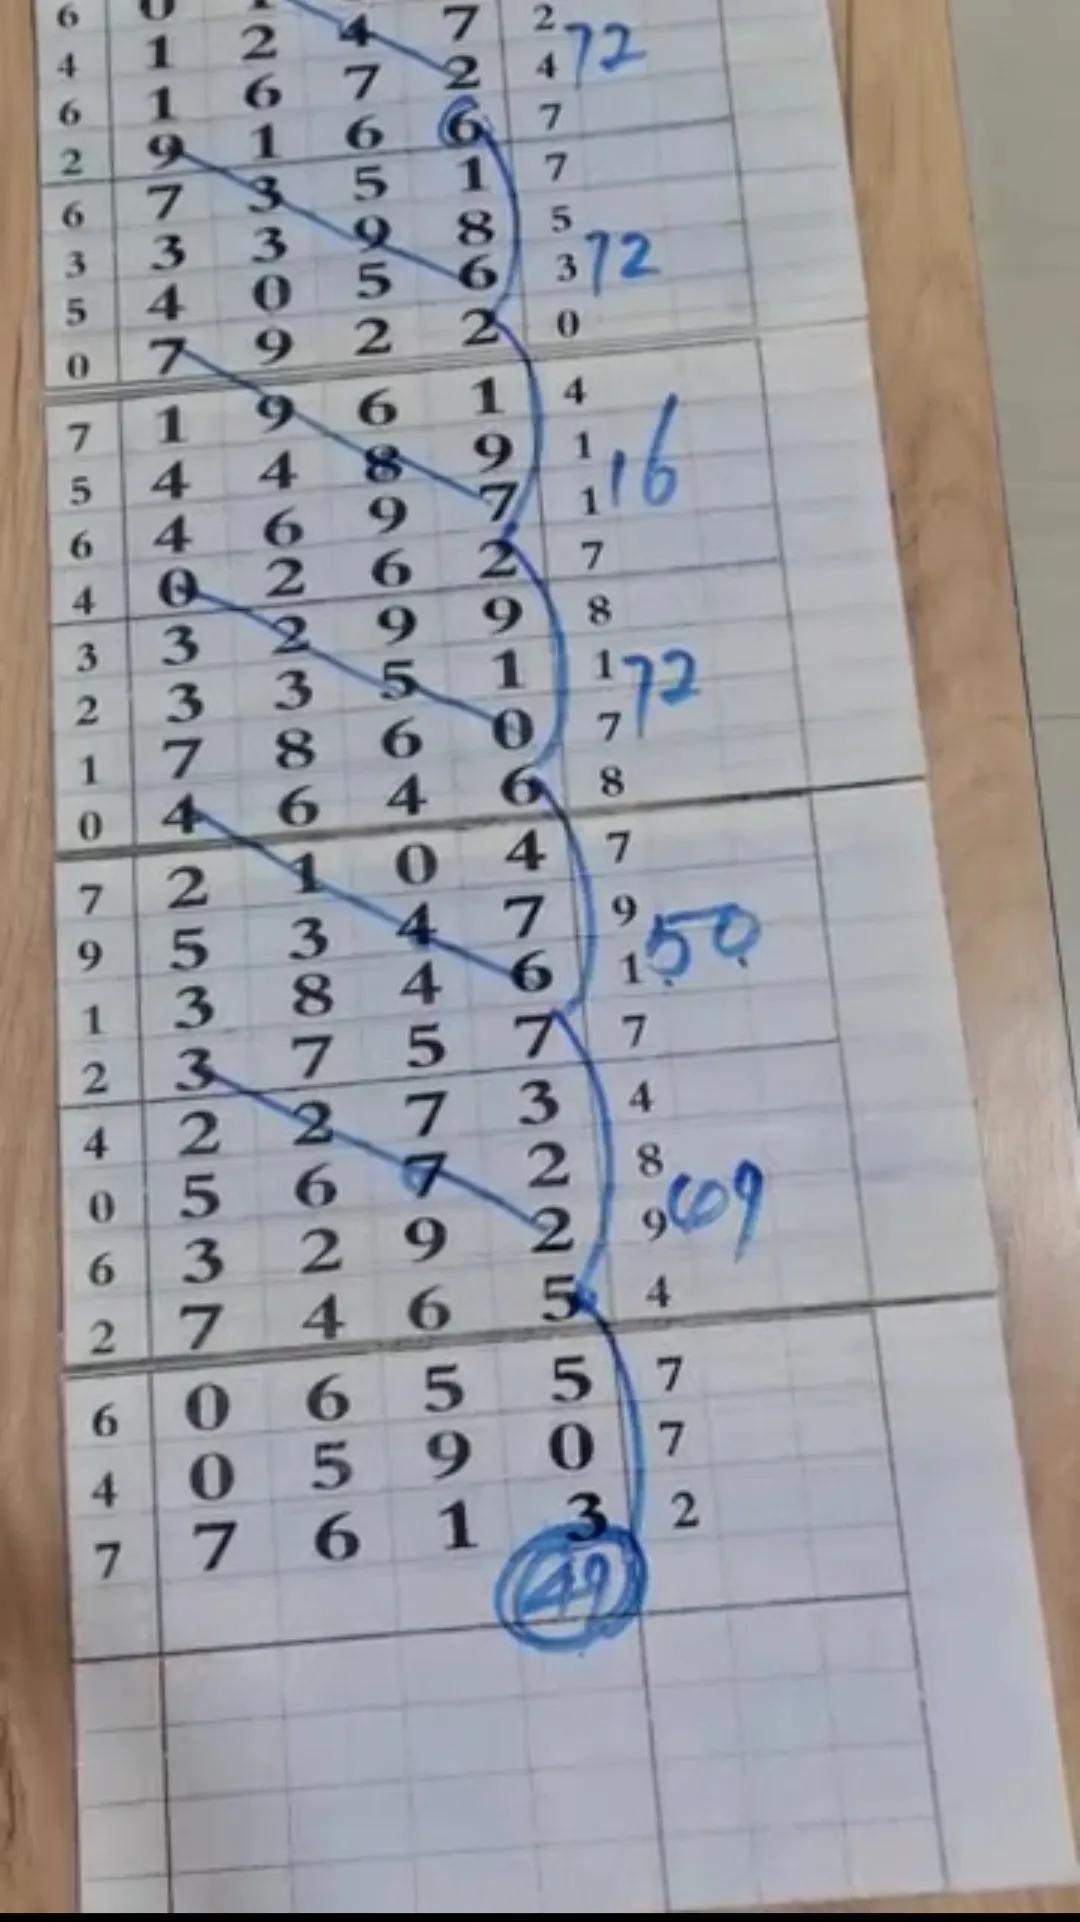 6 0 1
4 1 2 4 7 2
6 1 6 7 2 4 72
2 9 1 6 6 7
6 7 3 5 1 7
3 3 3 9 8 5
5 4 0 5 6 3 72
0 7 9 2 2 0
7 1 9 6 1 4
5 4 4 8 9 1
6 4 6 9 7 1 16
4 0 2 6 2 7
3 3 2 9 9 8
2 3 3 5 1 1 72
1 7 8 6 0 7
0 4 6 4 6 8
7 2 1 0 4 7
9 5 3 4 7 9
1 3 8 4 6 1 50
2 3 7 5 7 7
4 2 2 7 3 4
0 5 6 7 2 8
6 3 2 9 2 9 69
2 7 4 6 5 4
6 0 6 5 5 7
4 0 5 9 0 7
7 7 6 1 3 2
49